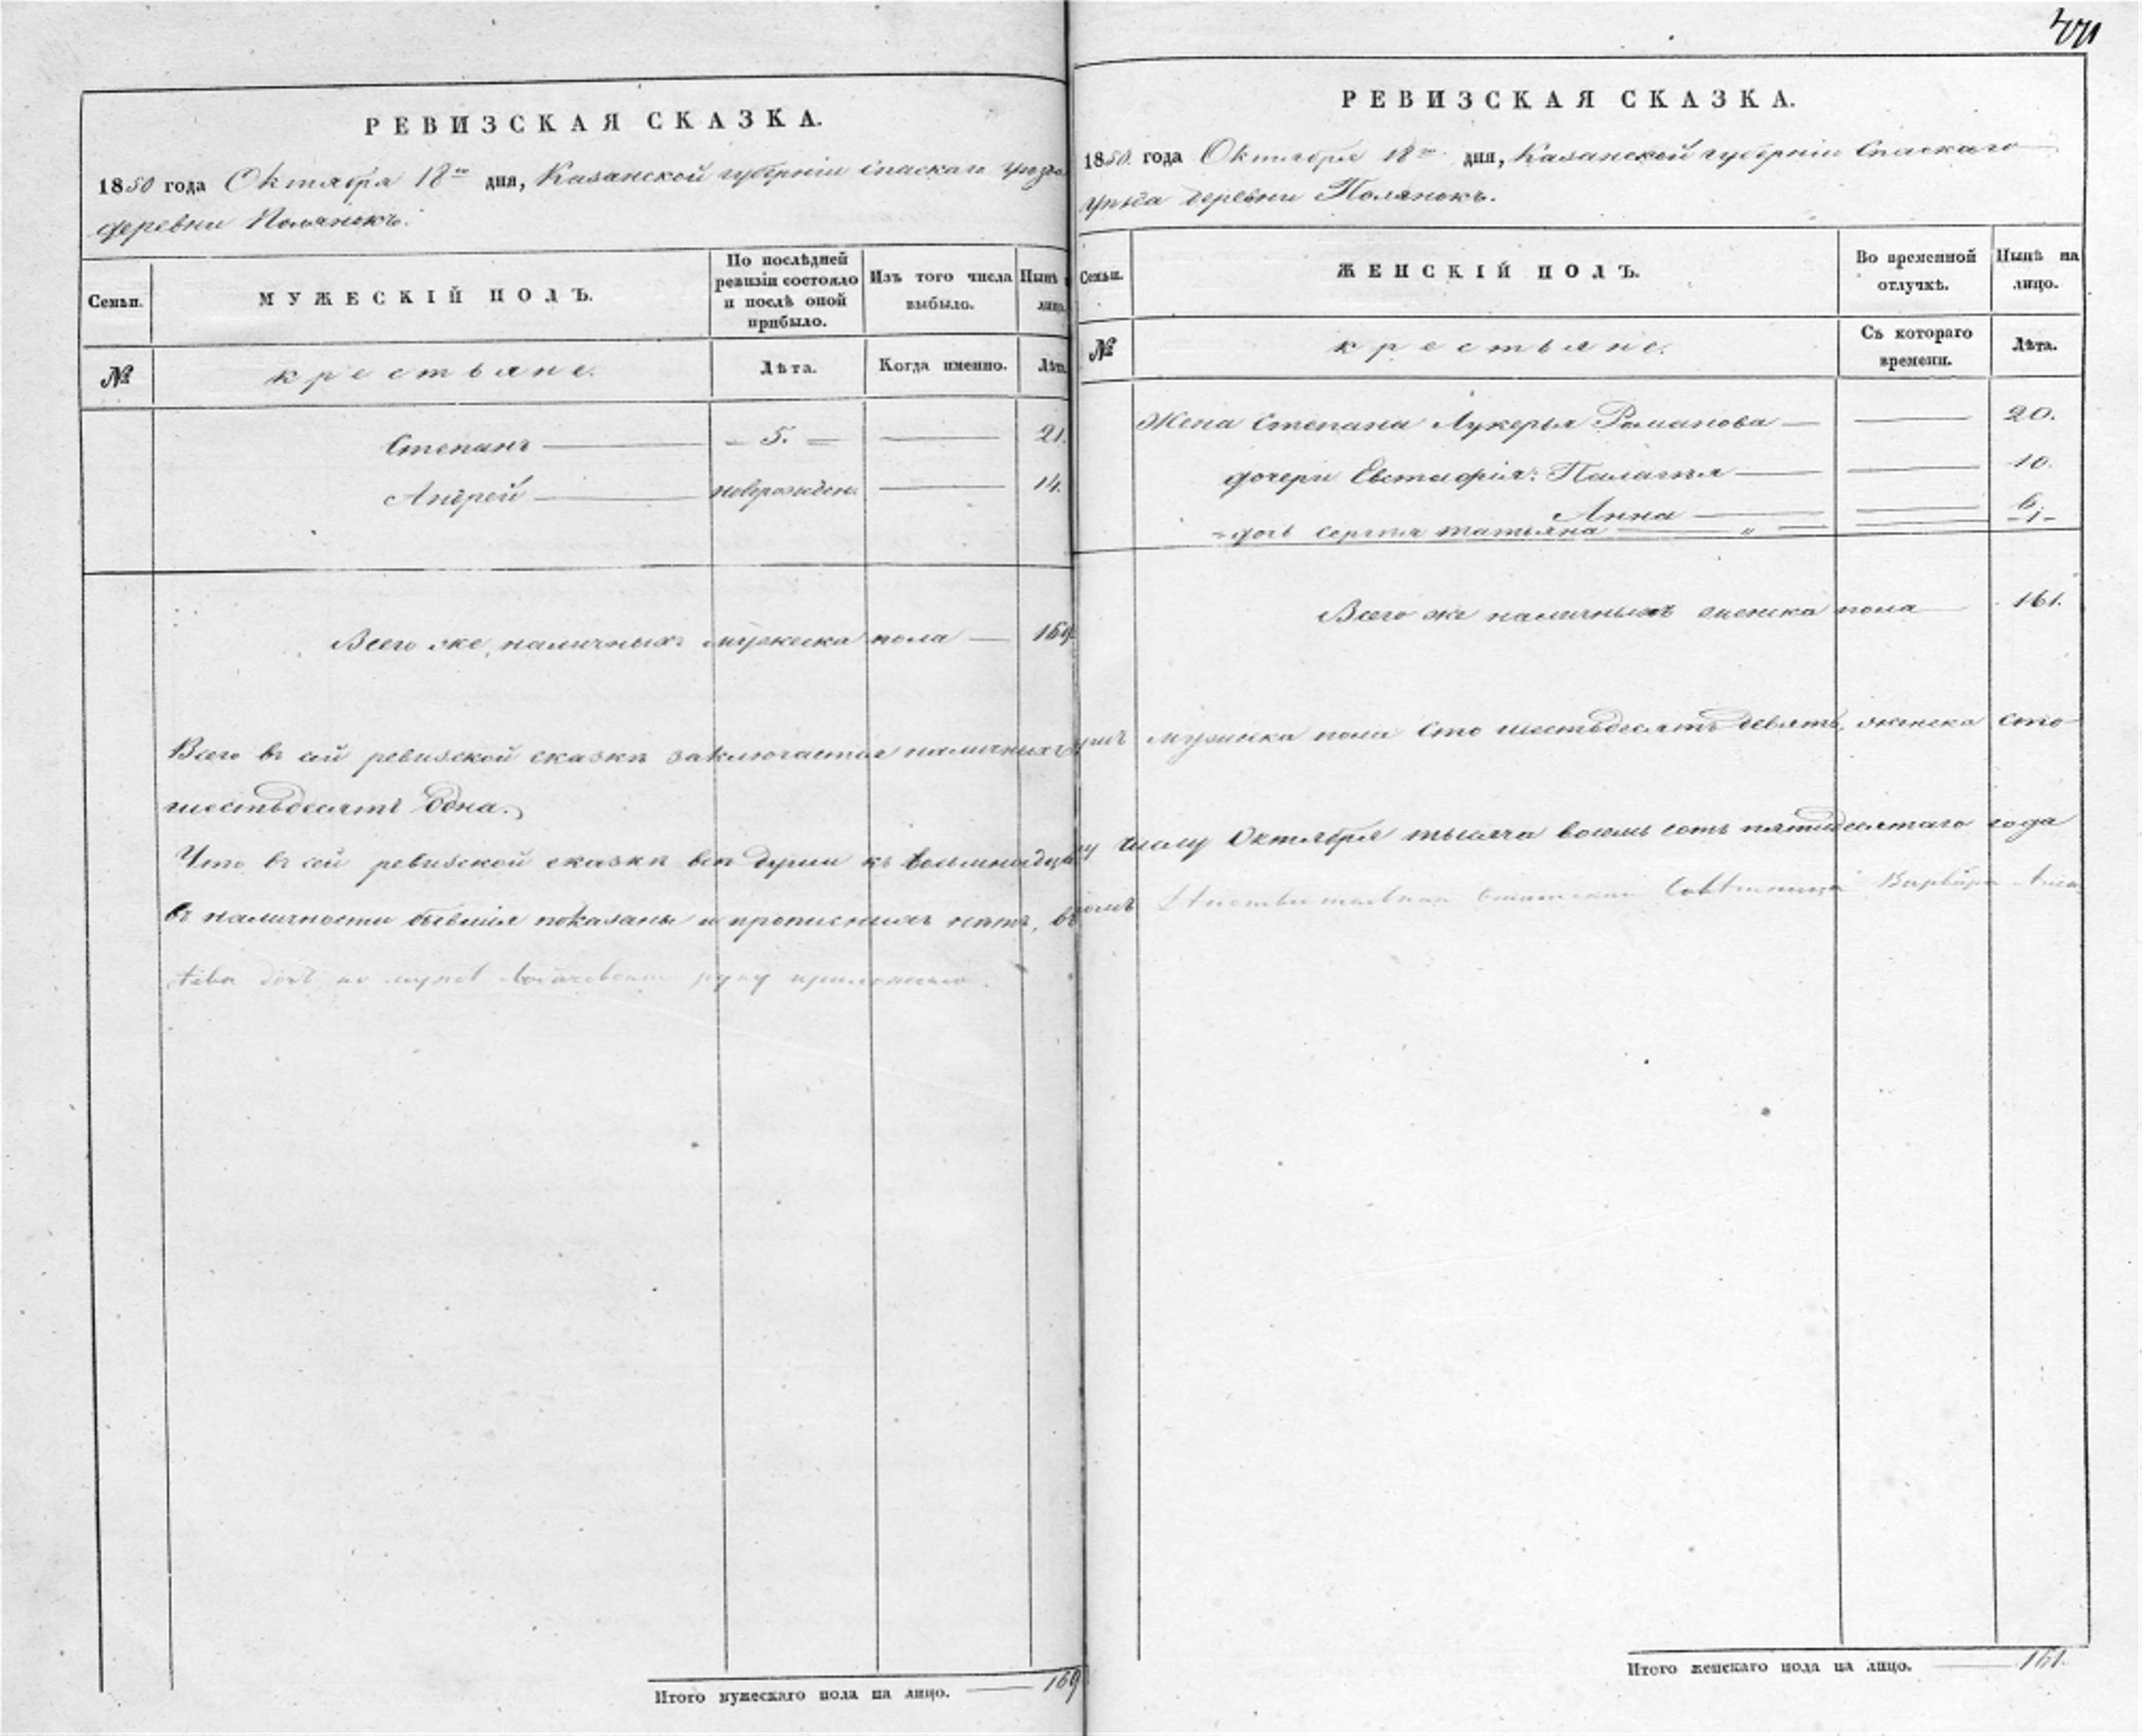 РЕВИЗСКАЯ СКАЗКА.
1850 года Октября 18го дня, Казанской губерніи Спаскаго уезда
деревни Полянокъ.
Семьи.
МУЖЕСКІЙ ПОЛЪ.
По послѣдней ревизіи состояло и послѣ оной прибыло.
Изъ того числа выбыло.
Нынѣ
лицо
№
крестьяне.
Лѣта.
Когда именно.
Лѣта
Степанъ 5. 21.
Андрей новорожден. 14.
Всего же наличныхъ мужеска пола 169
Всего въ сей ревизской сказкѣ заключается наличныхъ
шестьдесятъ одна.
Что въ сей ревизской сказкѣ все души къ
въ наличности бывшія показаны и прописныхъ нѣтъ, въ
руку приложила.
Итого мужескаго пола на лицо. 169
РЕВИЗСКАЯ СКАЗКА.
1850 года Октября 18го дня, Казанской губерніи Спаскаго
уѣзда деревни Полянокъ.
Семьи.
ЖЕНСКІЙ ПОЛЪ.
Во временной отлучкѣ.
Нынѣ на лицо.
№
крестьяне.
Съ котораго времени.
Лѣта.
Жена Степана Лукерья Романова 20.
дочери Евстафія: Палагѣя 10.
Анна 6.
дочь Сергѣя Татьяна 1
Всего же наличныхъ женска пола 161.
мужеска пола сто шестьдесятъ девять, женска сто
числу Октября тысяча восемь сотъ пятидесятаго года
Дѣйствительная Статская Совѣтница Варвара
Итого женскаго пола на лицо. 161.